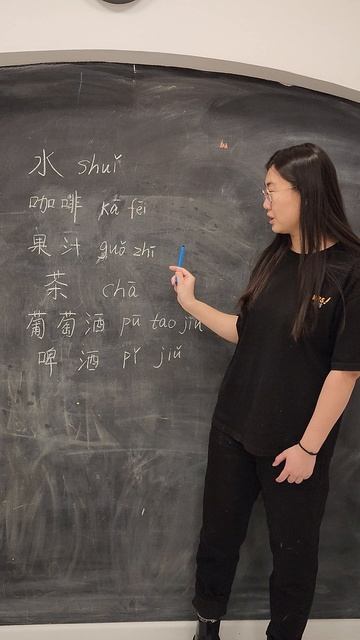 水 shuǐ
咖啡 kā fēi
果汁 guǒ zhī
茶 chā
葡萄酒 pū tao jiǔ
啤酒 pí jiǔ